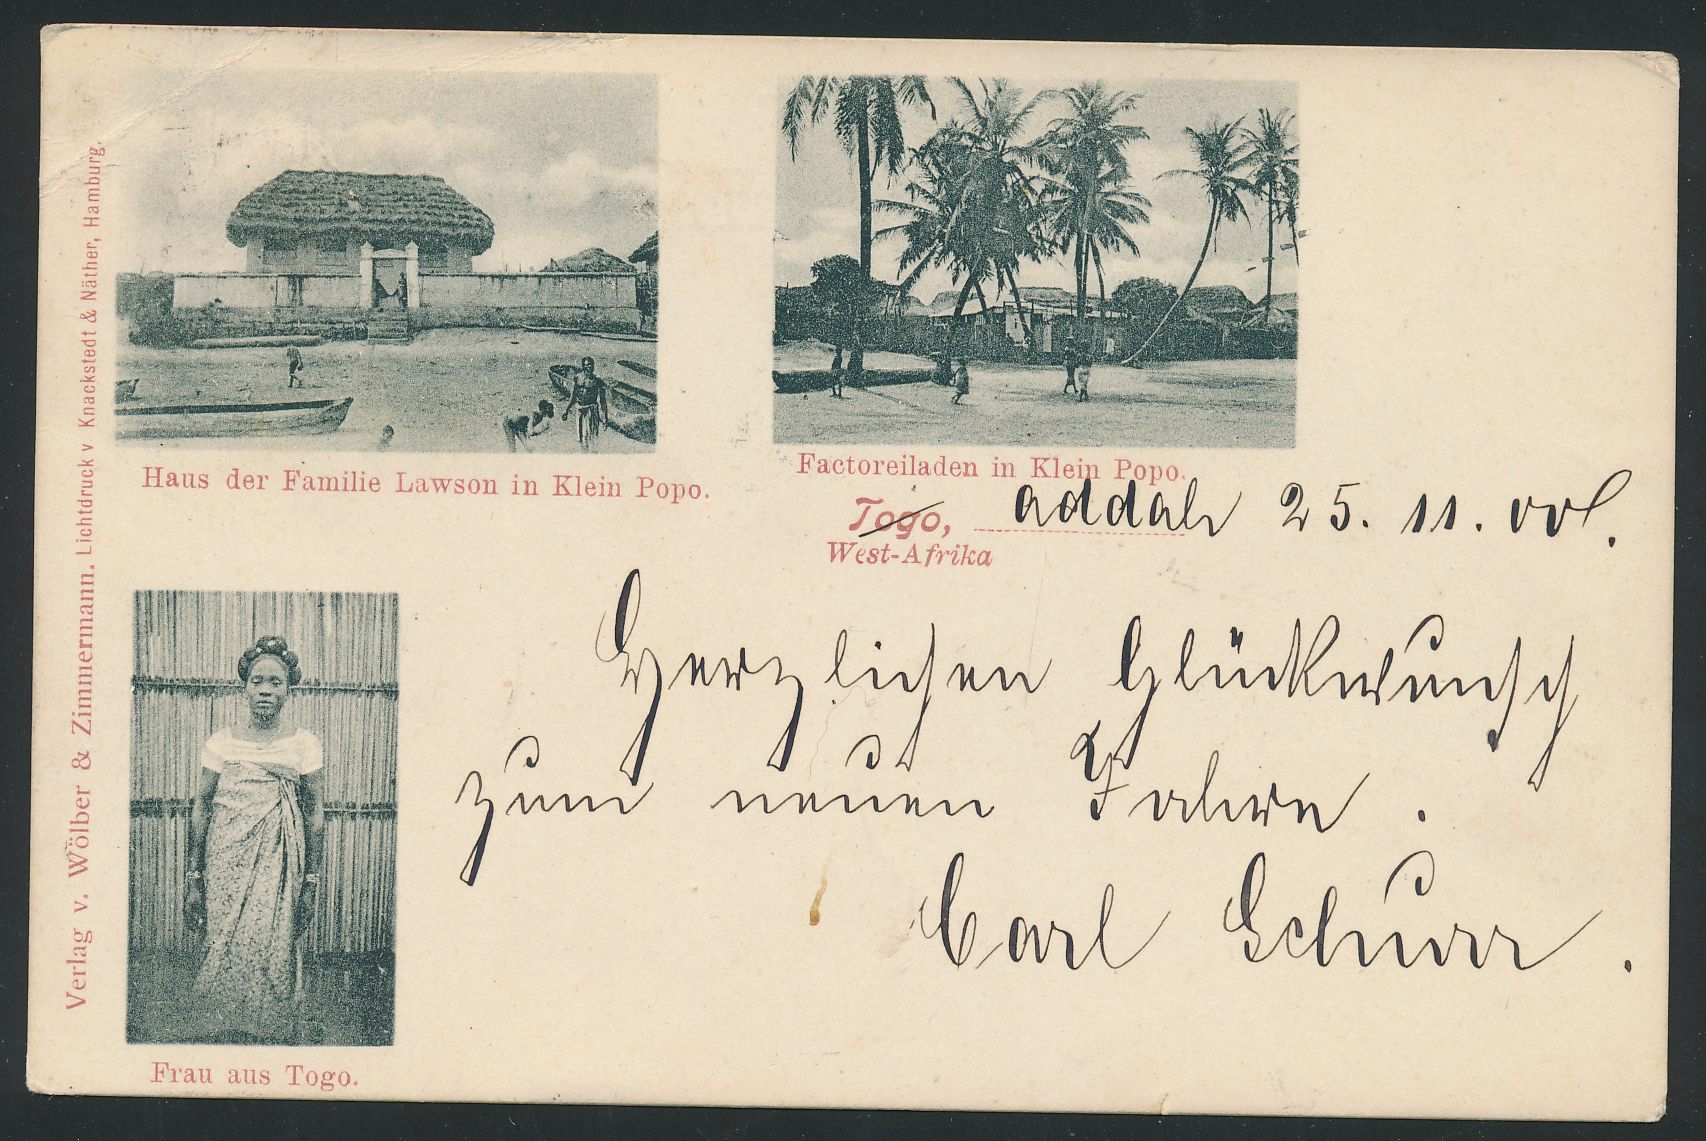 Haus der Familie Lawson in Klein Popo.
Factoreiladen in Klein Popo.
Togo, addah 25. 11. 00.
West-Afrika
Herzlichen Glückwunsch
zum neuen Jahre.
Carl Schurr.
Frau aus Togo.
Verlag v. Wölber & Zimmermann. Lichtdruck v Knackstedt & Näther, Hamburg.